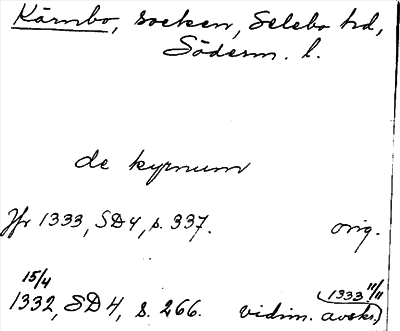 Kärnbo, socken, Selebo hd,
Söderm. l.
de kyrnum
Jfr 1333, SD4, s. 337. orig.
15/4 1332, SD4, s. 266. vidim. (1333 11/11 avskr.)